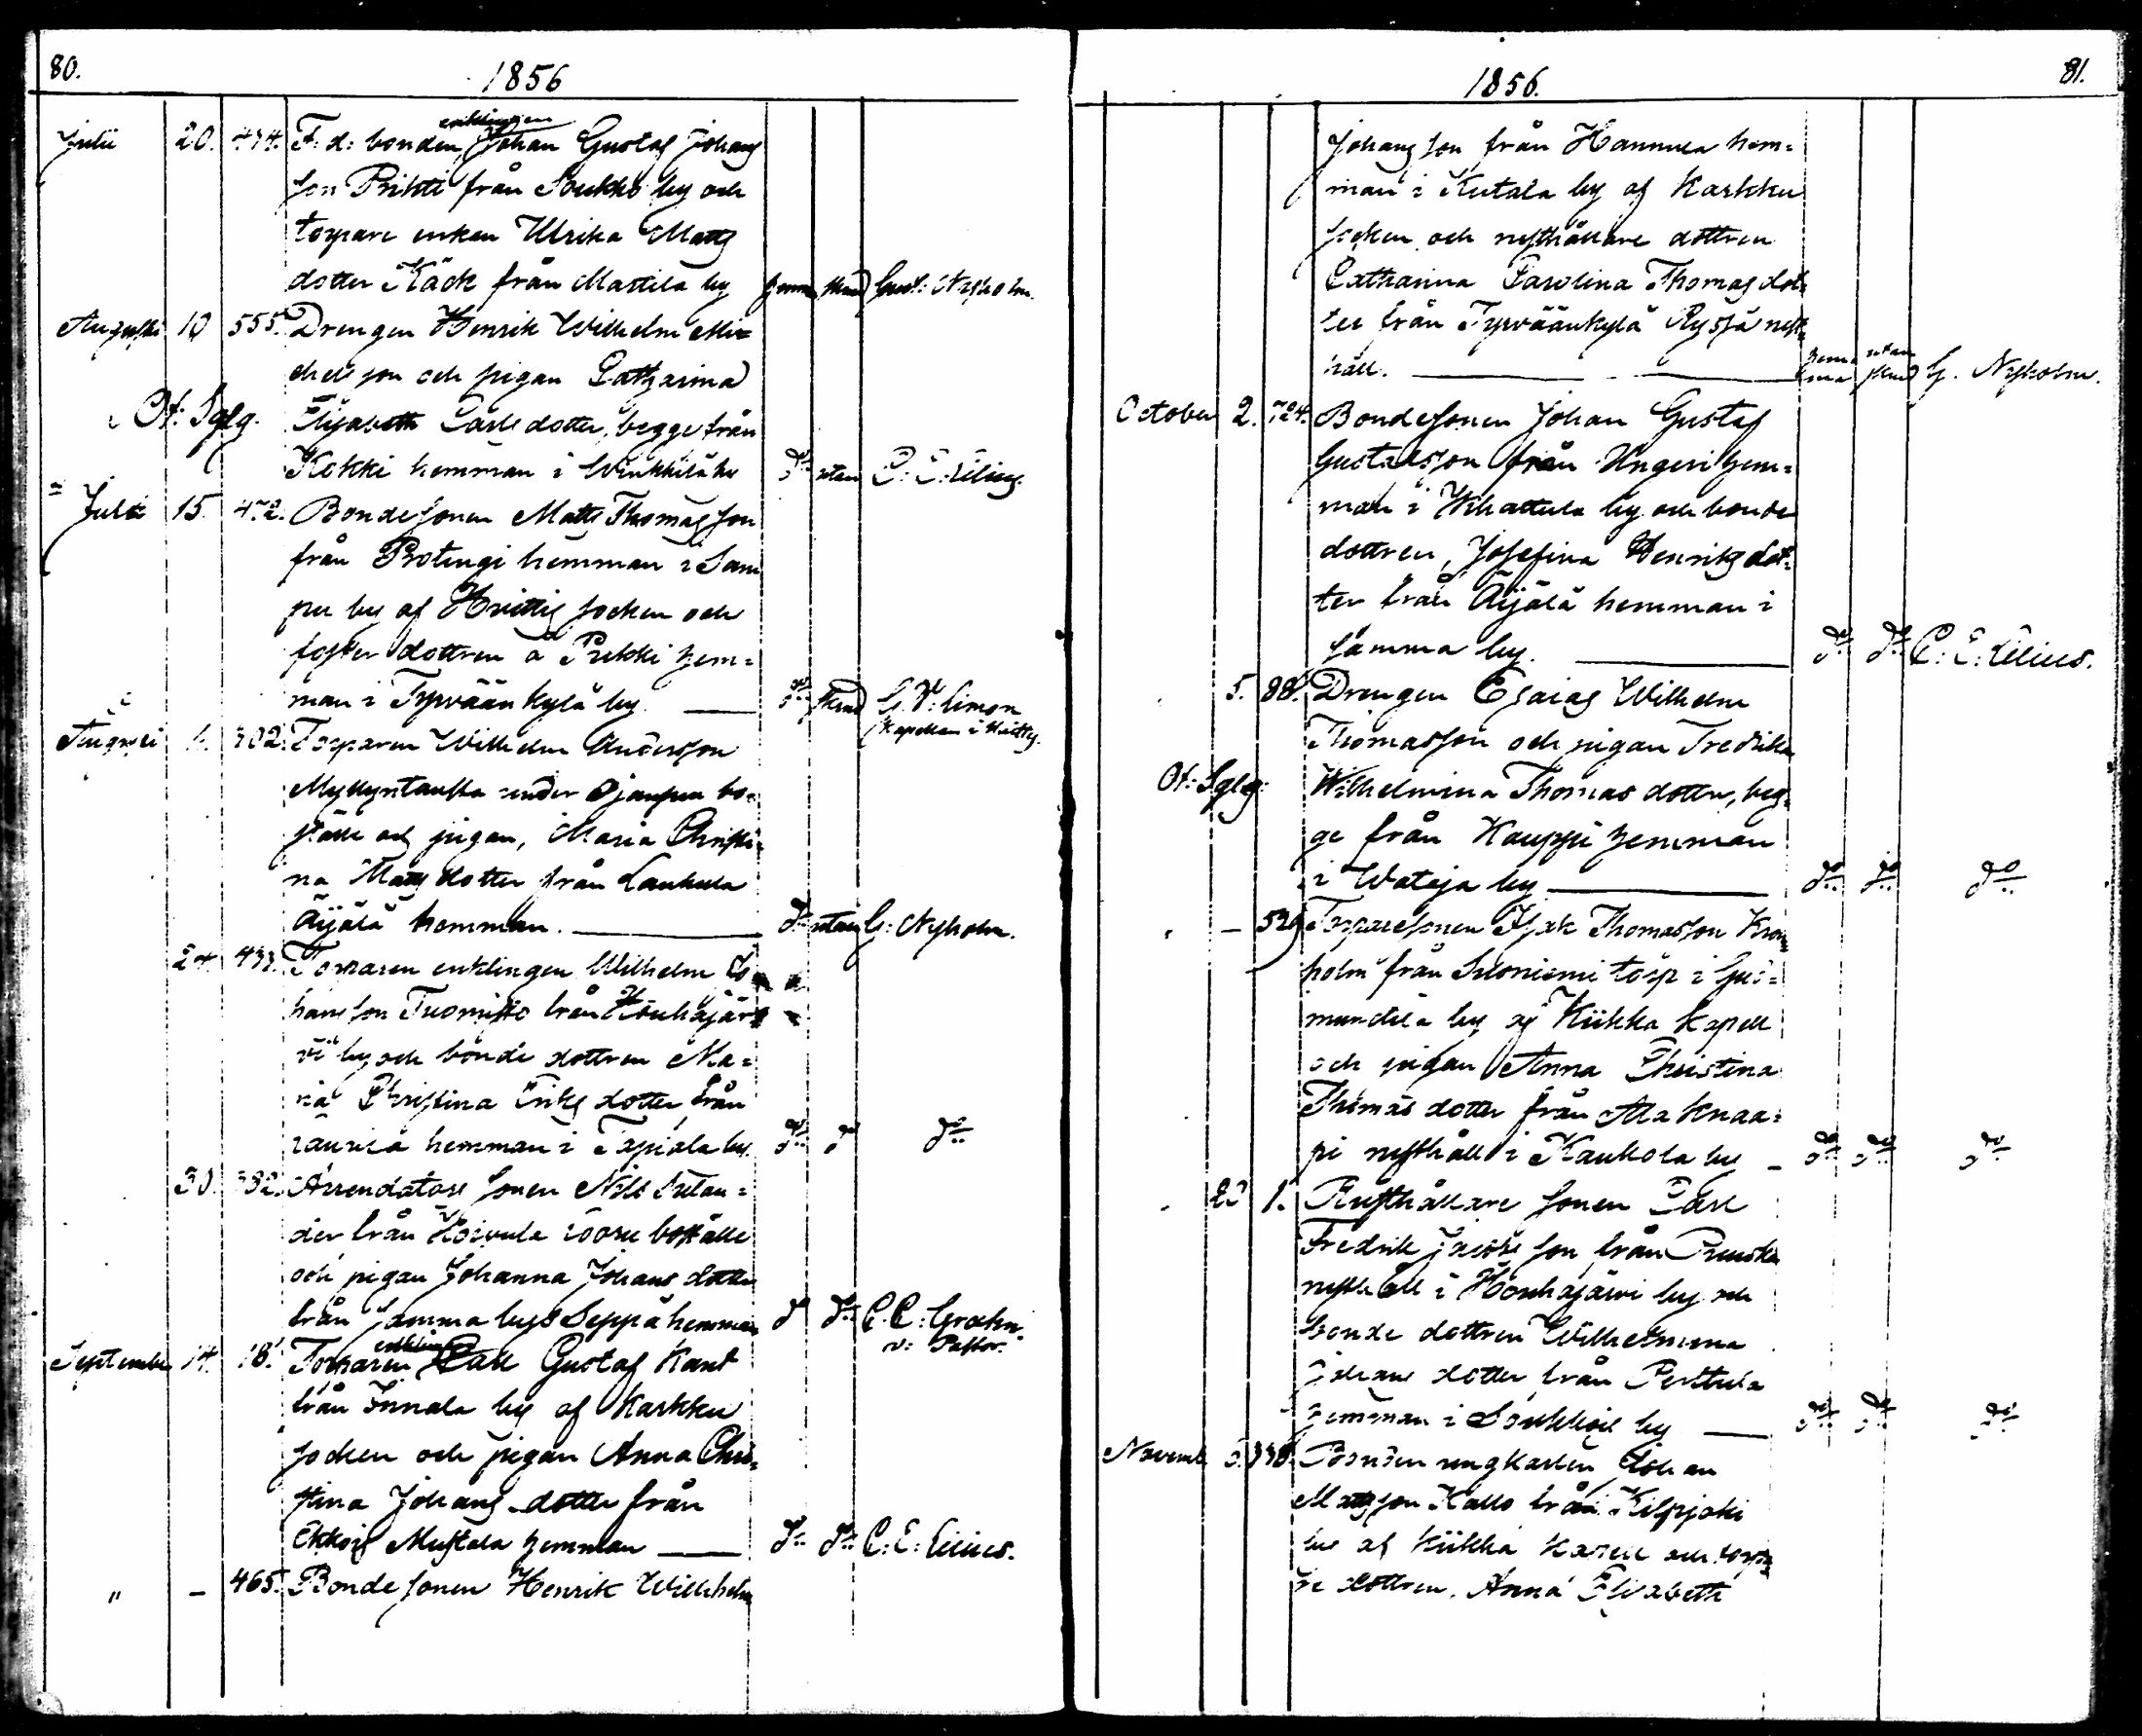 80.
1856
Julii 20. 474. F: d: bonden enklingen Johan Gustaf Johans
son Prihti från Soukko by och
torpare enkan Ulrika Matts
dotter Käck från Mattila by hemma Gust: Nyholm.
Augusti 10 555. Drengen Henrik Wilhelm Mi=
chels son och pigan Catharina
Of: Sglg. Elisabeth Carls dotter, begge från
Kokki hemman i do utan C: E: Lilius.
Julii 15. 472. Bonde sonen Matts Thomas son
från hemman i Sam
pu by af Hvittis socken och
foster dottren å Prihti hem=
man i Tyrväänkylä by. do G. W: Limon
Kapellan i Huittis.
Augusti 702. Torparen Wilhelm Andersson
under bo=
ställe och pigan, Maria Christi=
na Matts dotter från Laukula
Äijälä hemman. do utan G: Nyholm.
24. 433. Torparen enklingen Wilhelm Jo
hans son Tuomisto från Houhajär
vi by och bonde dottren Ma=
ria Christina Eriks dotter från
hemman i Tapiola by. do do do
30. 332. Arrendators sonen Nils
der från boställe
och pigan Johanna Johans dotter
från samma bys Seppä hemman do do C. C: Groehn
v: Pastor.
September 14. 18. Torparen enklingen Carl Gustaf Kant
från Innala by af Karkku
socken och pigan Anna Chri=
stina Johans dotter från
Ekkois Mustala hemman do do C: E: Lilius.
" – 465. Bonde sonen Henrik Wilhelm
1856.
81.
Johans son från Hannula hem=
man i Kutala by af Karkku
socken och rusthållare dottren
Catharina Carolina Thomas dot=
ter från Tyrväänkylä Ryssä rust=
håll. hemma utan G. Nyholm.
October 2. 724. Bondesonen Johan Gustaf
Gustafsson från Ungeri hem=
man i Wihattula by och bonde
dottren, Josefina Henriks dot=
ter från Äijälä hemman i
samma by. do do C: E: Lilius.
5. 88. Drengen Esaias Wilhelm
Thomasson och pigan Fredrika
Of: Sglg: Wilhelmina Thomas dotter, beg=
ge från Kauppi hemman
i Wataja by do do do
– 529 Torparesonen Isak Thomasson Kron
holm från Saloniemi torp i
by af Kiikka kapell
och pigan Anna Christina
Thomas dotter från Ala Knaa=
pi rusthåll i Kaukola by do do do
1. Rusthållare sonen Carl
Fredrik son från
rusthåll i Houhajärvi by och
bonde dottren Wilhelmina
Johans dotter från Perttula
hemman i by do do do
Novemb Bonden ungkarlen Johan
Matts son Kallo från Kilpijoki
by af Kiikka Kapell och torpa
re dottren, Anna Elisabeth